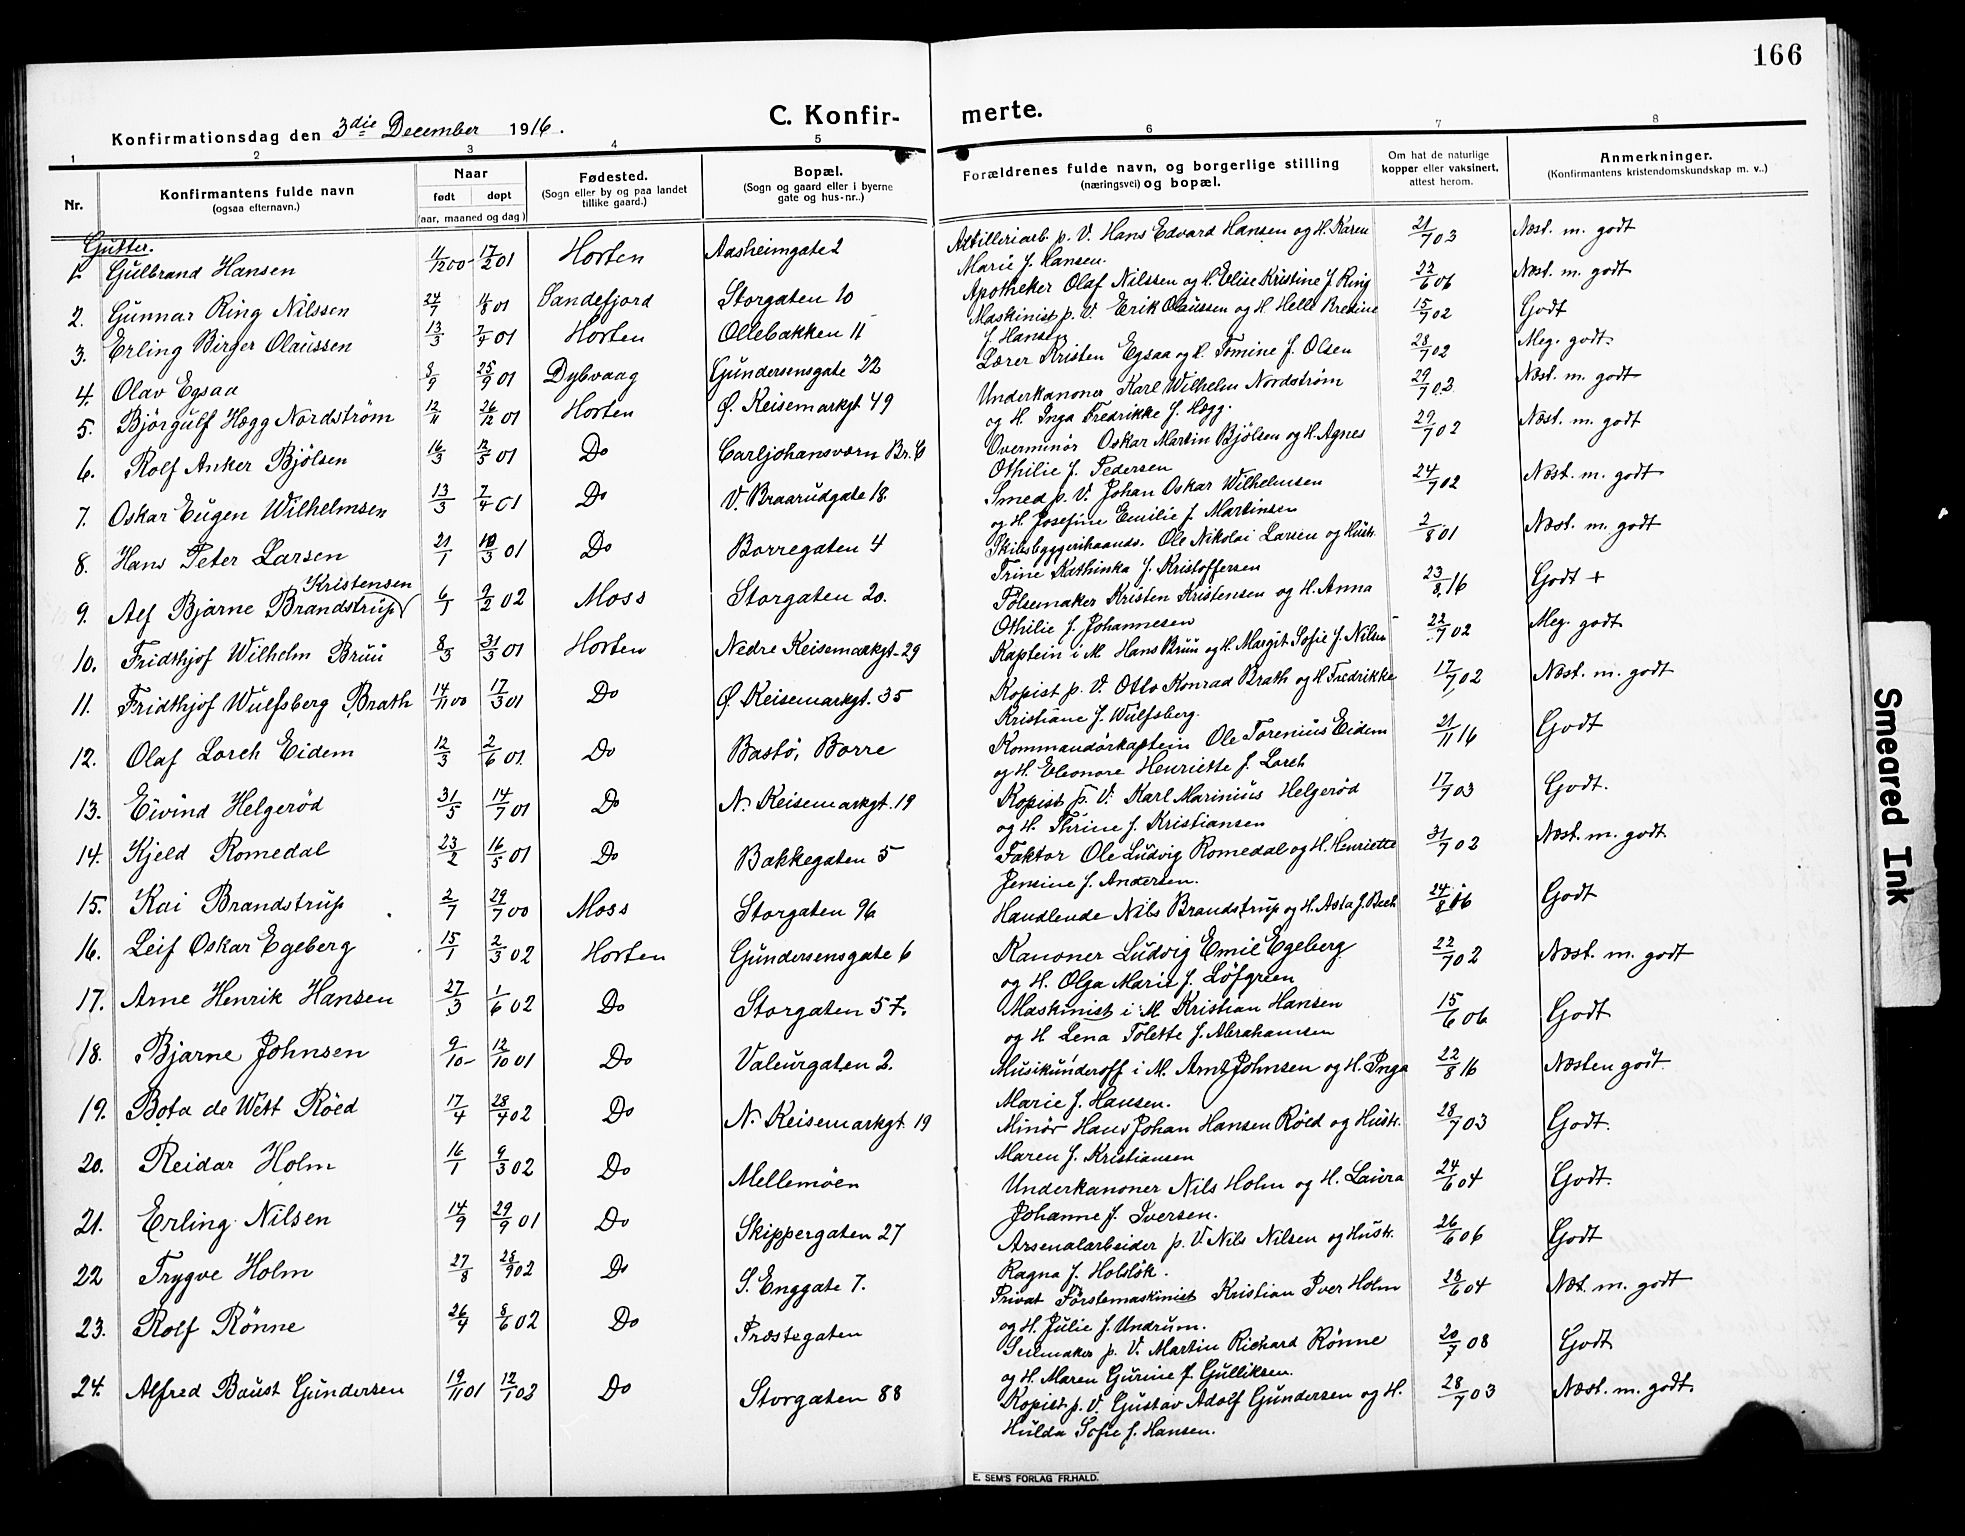 166
C. Konfirmerte.
Konfirmationsdag den 3die December 1916.
1 2 3 4 5 6 7 8
Nr.
Konfirmantens fulde navn
(ogsaa efternavn.)
Naar
født døpt
(aar, maaned og dag)
Fødested.
(Sogn eller by og paa landet
tillike gaard.)
Bopæl.
(Sogn og gaard eller i byerne
gate og hus-nr..)
Forældrenes fulde navn, og borgerlige stilling
(næringsvei) og bopæl.
Om hat de naturlige
kopper eller vaksinert,
attest herom.
Anmerkninger.
(Konfirmantens kristendomskundskap m. v..)
Gutter.
1. Gulbrand Hansen 4/12 00 17/2 01 Horten Aasheimgate 2 Artilleriarb. p. V. Hans Edvard Hansen og H. Karen 21/7 03 Næst. m. godt
Marie f. Hansen.
2. Gunnar Ring Nilssen 24/7 4/8 01 Sandefjord Storgaten 10 Apotheker Olaf Nilssen og H. Elise Kristine f. Ring 22/6 06 Næst. m. godt
3. Erling Birger Olaussen 13/3 7/4 01 Horten Ollebakken 11 Maskinist p. V. Erik Olaussen og H. Helle Bredine 15/7 02 Godt
f. Hansen
4. Olav Egsaa 8/9 25/9 01 Dybvaag Gundersensgate 22 Lærer Kristen Egsaa og H. Tomine f. Olsen 28/7 02 Meg. godt
5. Bjørgulf Hægg Nordström 12/11 26/12 01 Horten Ø. Keisemarkgt 49 Underkanoner Karl Wilhelm Nordström 29/7 03 Næst. m. godt
og H. Inga Fredrikke f. Hægg.
6. Rolf Anker Bjölsen 16/3 12/5 01 Do Carljohansværn Br. C Overminör Oskar Martin Bjölsen og H. Agnes 29/7 02 Næst. m. godt
Othilie f. Pedersen
7. Oskar Eugen Wilhelmsen 13/3 7/4 01 Do V. Braarudgate 18. Smed p. V. Johan Oskar Wilhelmsen 24/7 02 Næst. m. godt
og H. Josefine Emilie f. Martinsen
8. Hans Peter Larsen 21/1 10/3 01 Do Borregaten 4 Skibsbyggerihaandv. Ole Nikolai Larsen og Hustr. 2/8 01 Næst. m. godt
Trine Kathinka f. Kristoffersen
Kristensen
9. Alf Bjarne Brandstrup 6/1 9/2 02 Moss Storgaten 20. Pølsemaker Kristen Kristensen og H. Anna 23/8 16 Godt +
Othilie f. Johannesen
10. Fridthjof Wilhelm Bruu 8/3 31/3 01 Horten Nedre Keisemarkgt. 29 Kaptein i M. Hans Bruu og H. Margit Sofie f. Nilsen 22/7 02 Meg. godt
11. Fridthjof Wulfsberg Brath 14/11 00 17/3 01 Do Ø. Keisemarkgt. 35 Kopist p. V. Otto Konrad Brath og H. Fredrikke 17/7 02 Næst. m. godt
Kristiane f. Wulfsberg.
12. Olaf Lorch Eidem 12/3 2/6 01. Do Bastö, Borre Kommandörkaptein Ole Torenius Eidem 21/11 16 Godt
og H. Eleonore Henriette f. Lorch
13. Eivind Helgeröd 31/5 14/7 01 Do N. Keisemarkgt. 19 Kopist p. V. Karl Marinius Helgeröd 17/7 03 Godt.
og H. Thrine f. Kristiansen
14. Kjeld Romedal 23/2 16/5 01 Do Bakkegaten 5 Faktor Ole Ludvig Romedal og H. Henriette 31/7 02 Næst. m. godt
Jensine f. Andersen.
15. Kai Brandstrup 2/7 29/7 00 Moss Storgaten 96 Handlende Nils Brandstrup og H. Asta f. Bech 24/8 16 Godt
16. Leif Oskar Egeberg 15/1 2/3 02 Horten Gundersensgate 6 Kanoner Ludvig Emil Egeberg 22/7 02 Næst. m. godt
og H. Olga Marie f. Löfgreen
17. Arne Henrik Hansen 27/3 1/6 02 Do Storgaten 57. Maskinist i M. Kristian Hansen 15/6 06 Godt
og H Lena Tolette f. Abrahamsen
18. Bjarne Johnsen 9/10 12/10 01 Do Valeurgaten 2. Musikunderoff i M. Arnt Johnsen og H. Inga 22/8 16 Næsten godt.
Marie f. Hansen.
19. Bota de Wett Röed 17/4 28/4 02 Do N. Keisemarkgt. 19 Minör Hans Johan Hansen Röed og Hustr. 28/7 03 Godt.
Maren f. Kristiansen
20. Reidar Holm 16/1 9/3 02 Do Mellemöen Underkanoner Nils Holm og H. Laura 24/6 04 Godt.
Johanne f. Iversen.
21. Erling Nilsen 14/9 29/9 01 Do Skippergaten 27 Arsenalarbeider p. V. Nils Nilsen og Hustr. 26/6 06 Godt
Ragna f. Holsløk.
22 Trygve Holm 27/8 28/9 02 Do S. Enggate 7. Privat Förstemaskinist Kristian Iver Holm 28/6 04 Næt. m. godt
og H. Julie f. Undrum.
23. Rolf Rönne 26/4 8/6 02 Do Præstegaten Seilmaker p. V. Martin Richard Rönne 20/7 08 Godt
og H. Maren Gurine f. Gulliksen.
24. Alfred Baust Gundersen 19/11 01 12/1 02 Do Storgaten 88 Kopist p. V. Gustav Adolf Gundersen og H. 28/7 03 Næst. m. godt.
Hulda Sofie f. Hansen.
E. SEM'S FORLAG FR.HALD.
Smeared Ink